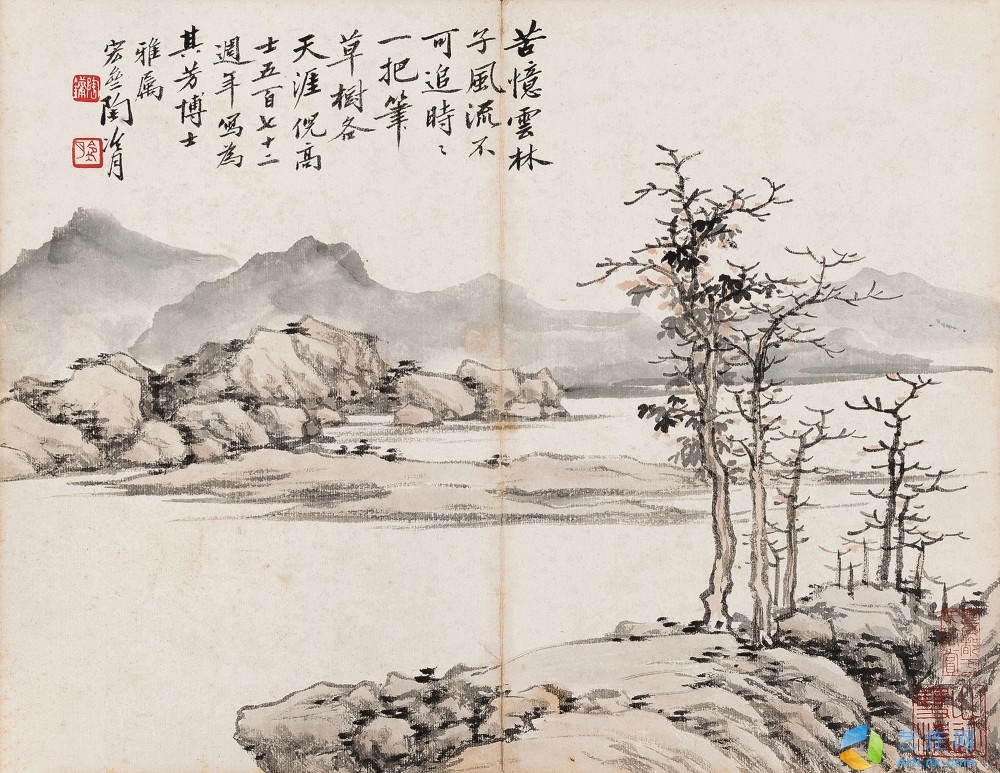 苦憶雲林
子風流不
可追時〻
一把筆
草樹各
天涯倪高
士五百七十二
週年寫為
其芳博士
雅属
宏亝陶冷月
陶鏞